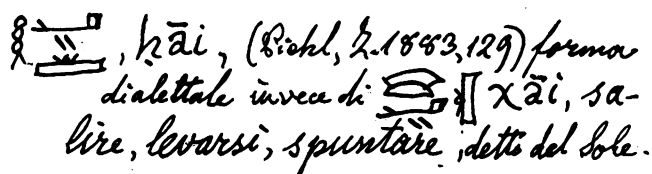 𓎛𓂝𓏭𓇾, ḥāi, (Piehl, Z. 1883, 129) forma
dialettale invece di 𓐍𓂝𓏭𓏛 χāi, sa-
lire, levarsi, spuntare, detto del Sole.